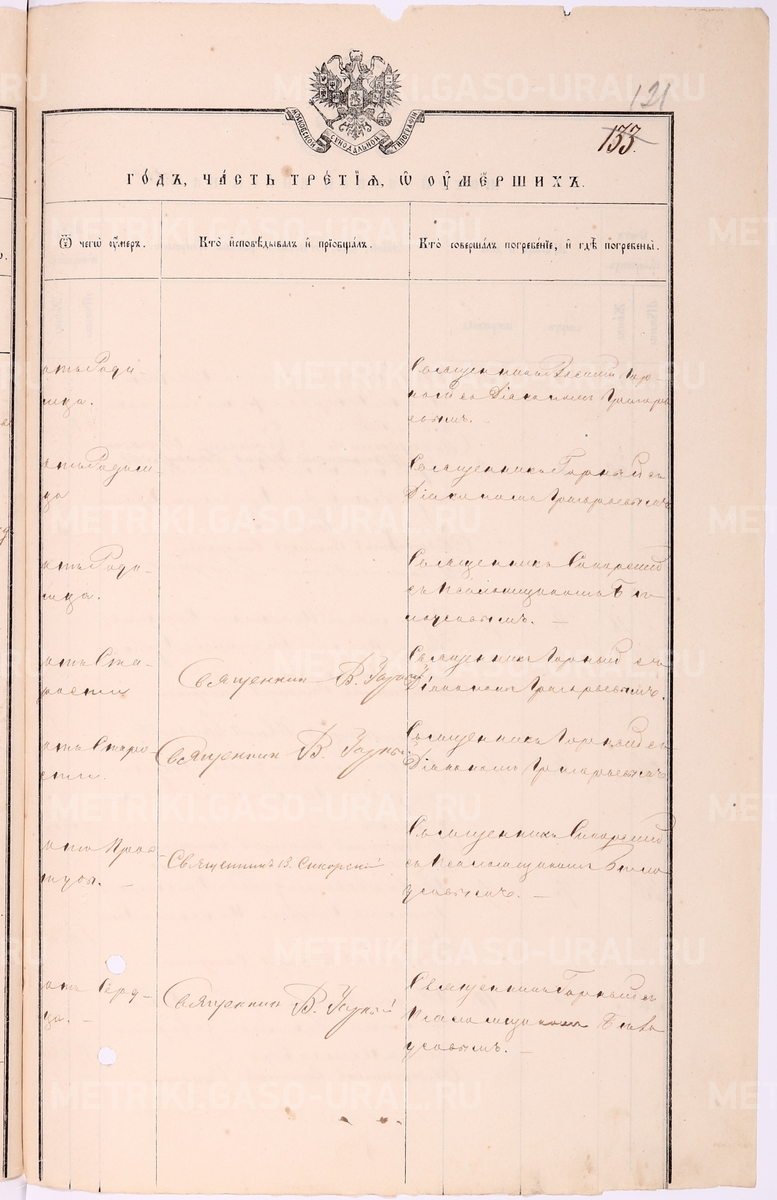 121
133.
МОСКОВСКОЙ СѴНОДАЛЬНОЙ ТИПОГРАФІИ
ГОДЪ, ЧАСТЬ ТРЕТІЯ, Ѡ ОУМЕРШИХЪ.
Ѿ чегѡ оумеръ.
Кто исповѣдывалъ и прїобщалъ.
Кто совершалъ погребенїе, и гдѣ погребены.
отъ Роди
мца.
Священникъ
съ Діакономъ Григорье
вымъ.
отъ Родим-
ца
Священникъ Горный съ
Діакономъ Григорьевымъ
отъ Роди-
мца.
Священникъ Сикорскій
съ Псаломщикомъ Бѣло
усовымъ. —
отъ Ста-
рости
Священникъ В. Горный
Священникъ Горный съ
Діакономъ Григорьевымъ.
отъ Старо
сти.
Священникъ В. Горный
Священникъ Горный съ
Діакономъ Григорьевымъ
отъ Прос-
туды. —
Священникъ В. Сикорскій
Священникъ Сикорскій
съ Псаломщикомъ Бѣло
усовымъ. —
отъ Серд-
ца. —
Священникъ В. Горный
Священникъ Горный съ
Псаломщикомъ Бѣло
усовымъ. —
METRIKI.GASO-URAL.RU